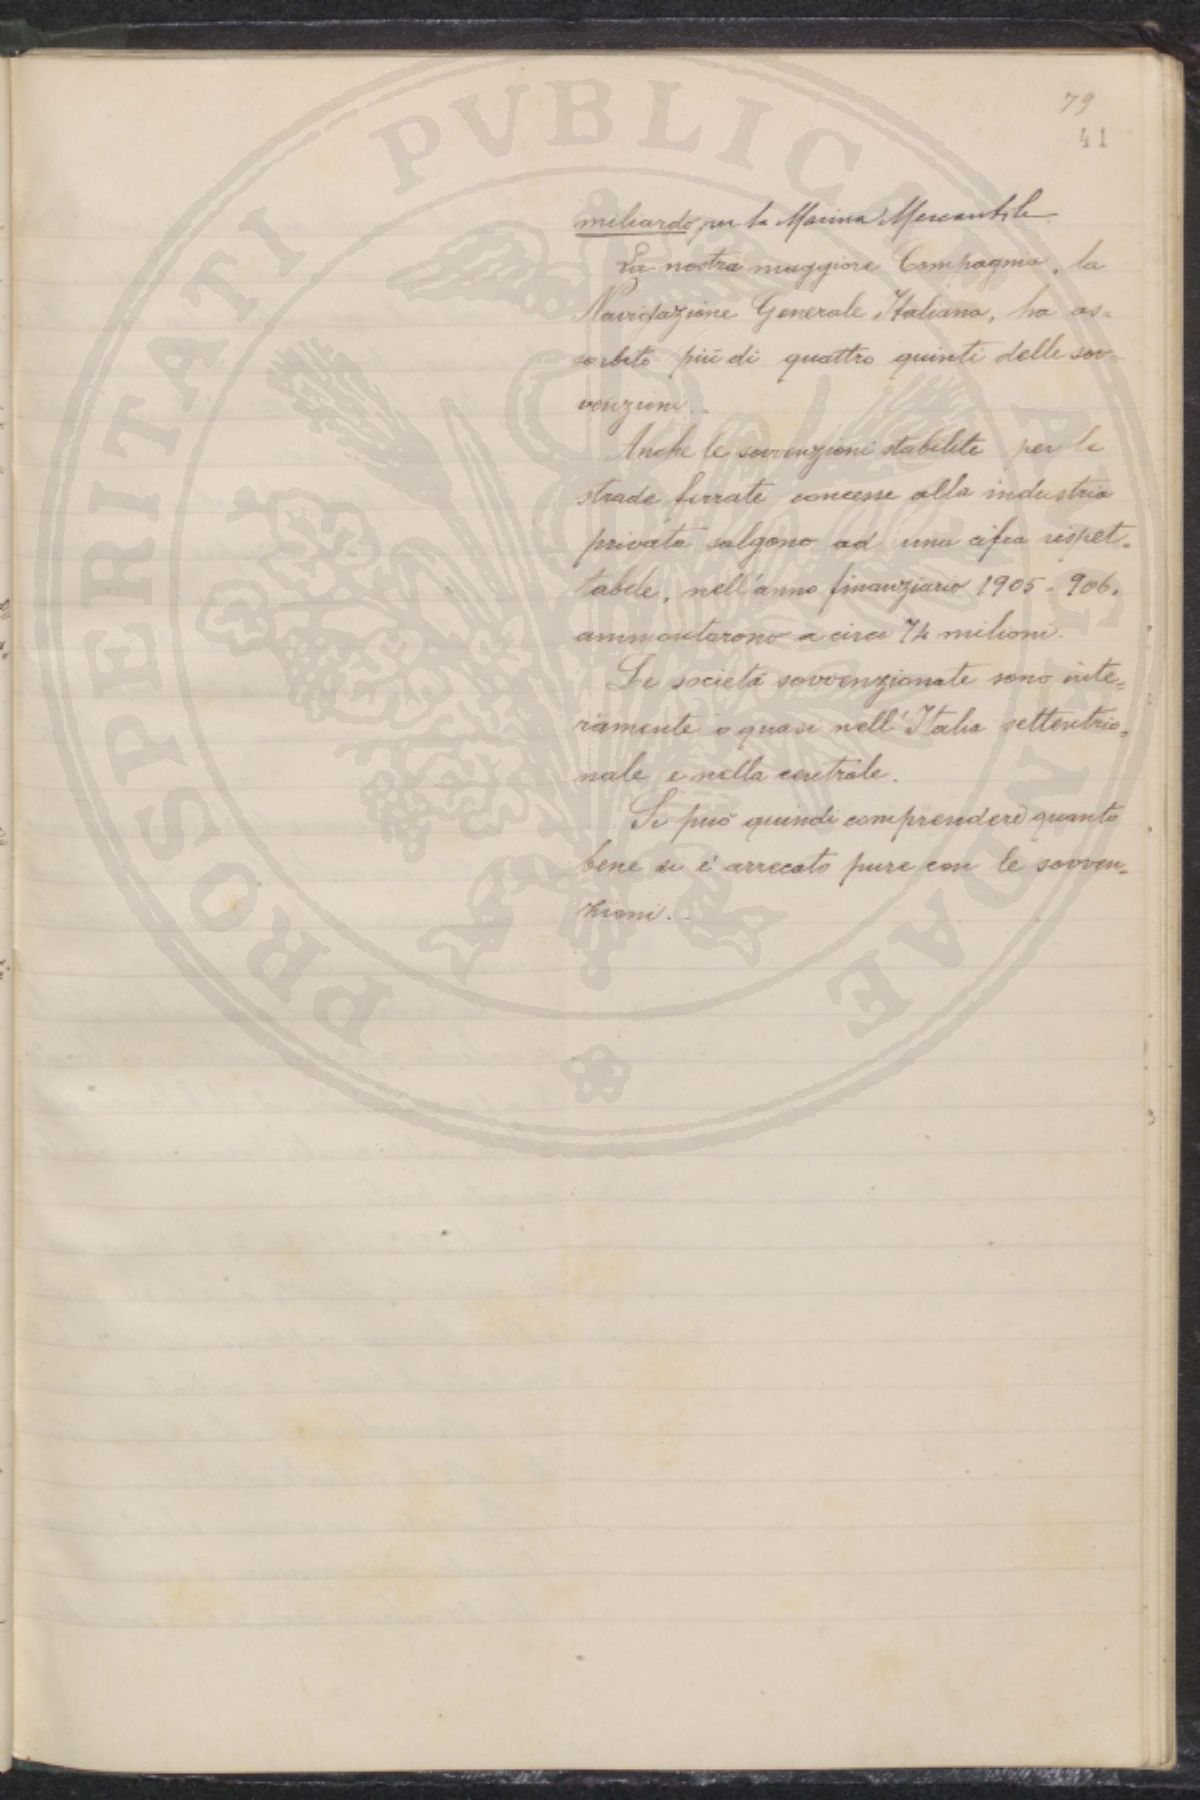 79
41
miliardo per la Marina Mercantile
La nostra maggiore Compagnia, la
Navigazione Generale Italiana, ha as=
sorbito più di quattro quinti delle sov-
venzioni.
Anche le sovvenzioni stabilite per le
strade ferrate concesse alla industria
privata salgono ad una cifra rispet=
tabile, nell'anno finanziario 1905-906,
ammontarono a circa 74 milioni.
Le società sovvenzionate sono inte=
ramente o quasi nell'Italia settentrio=
nale e nella centrale.
Si può quindi comprendere quanto
bene si è arrecato pure con le sovven=
zioni.
PROSPERITATI PVBLICAE AVGENDAE